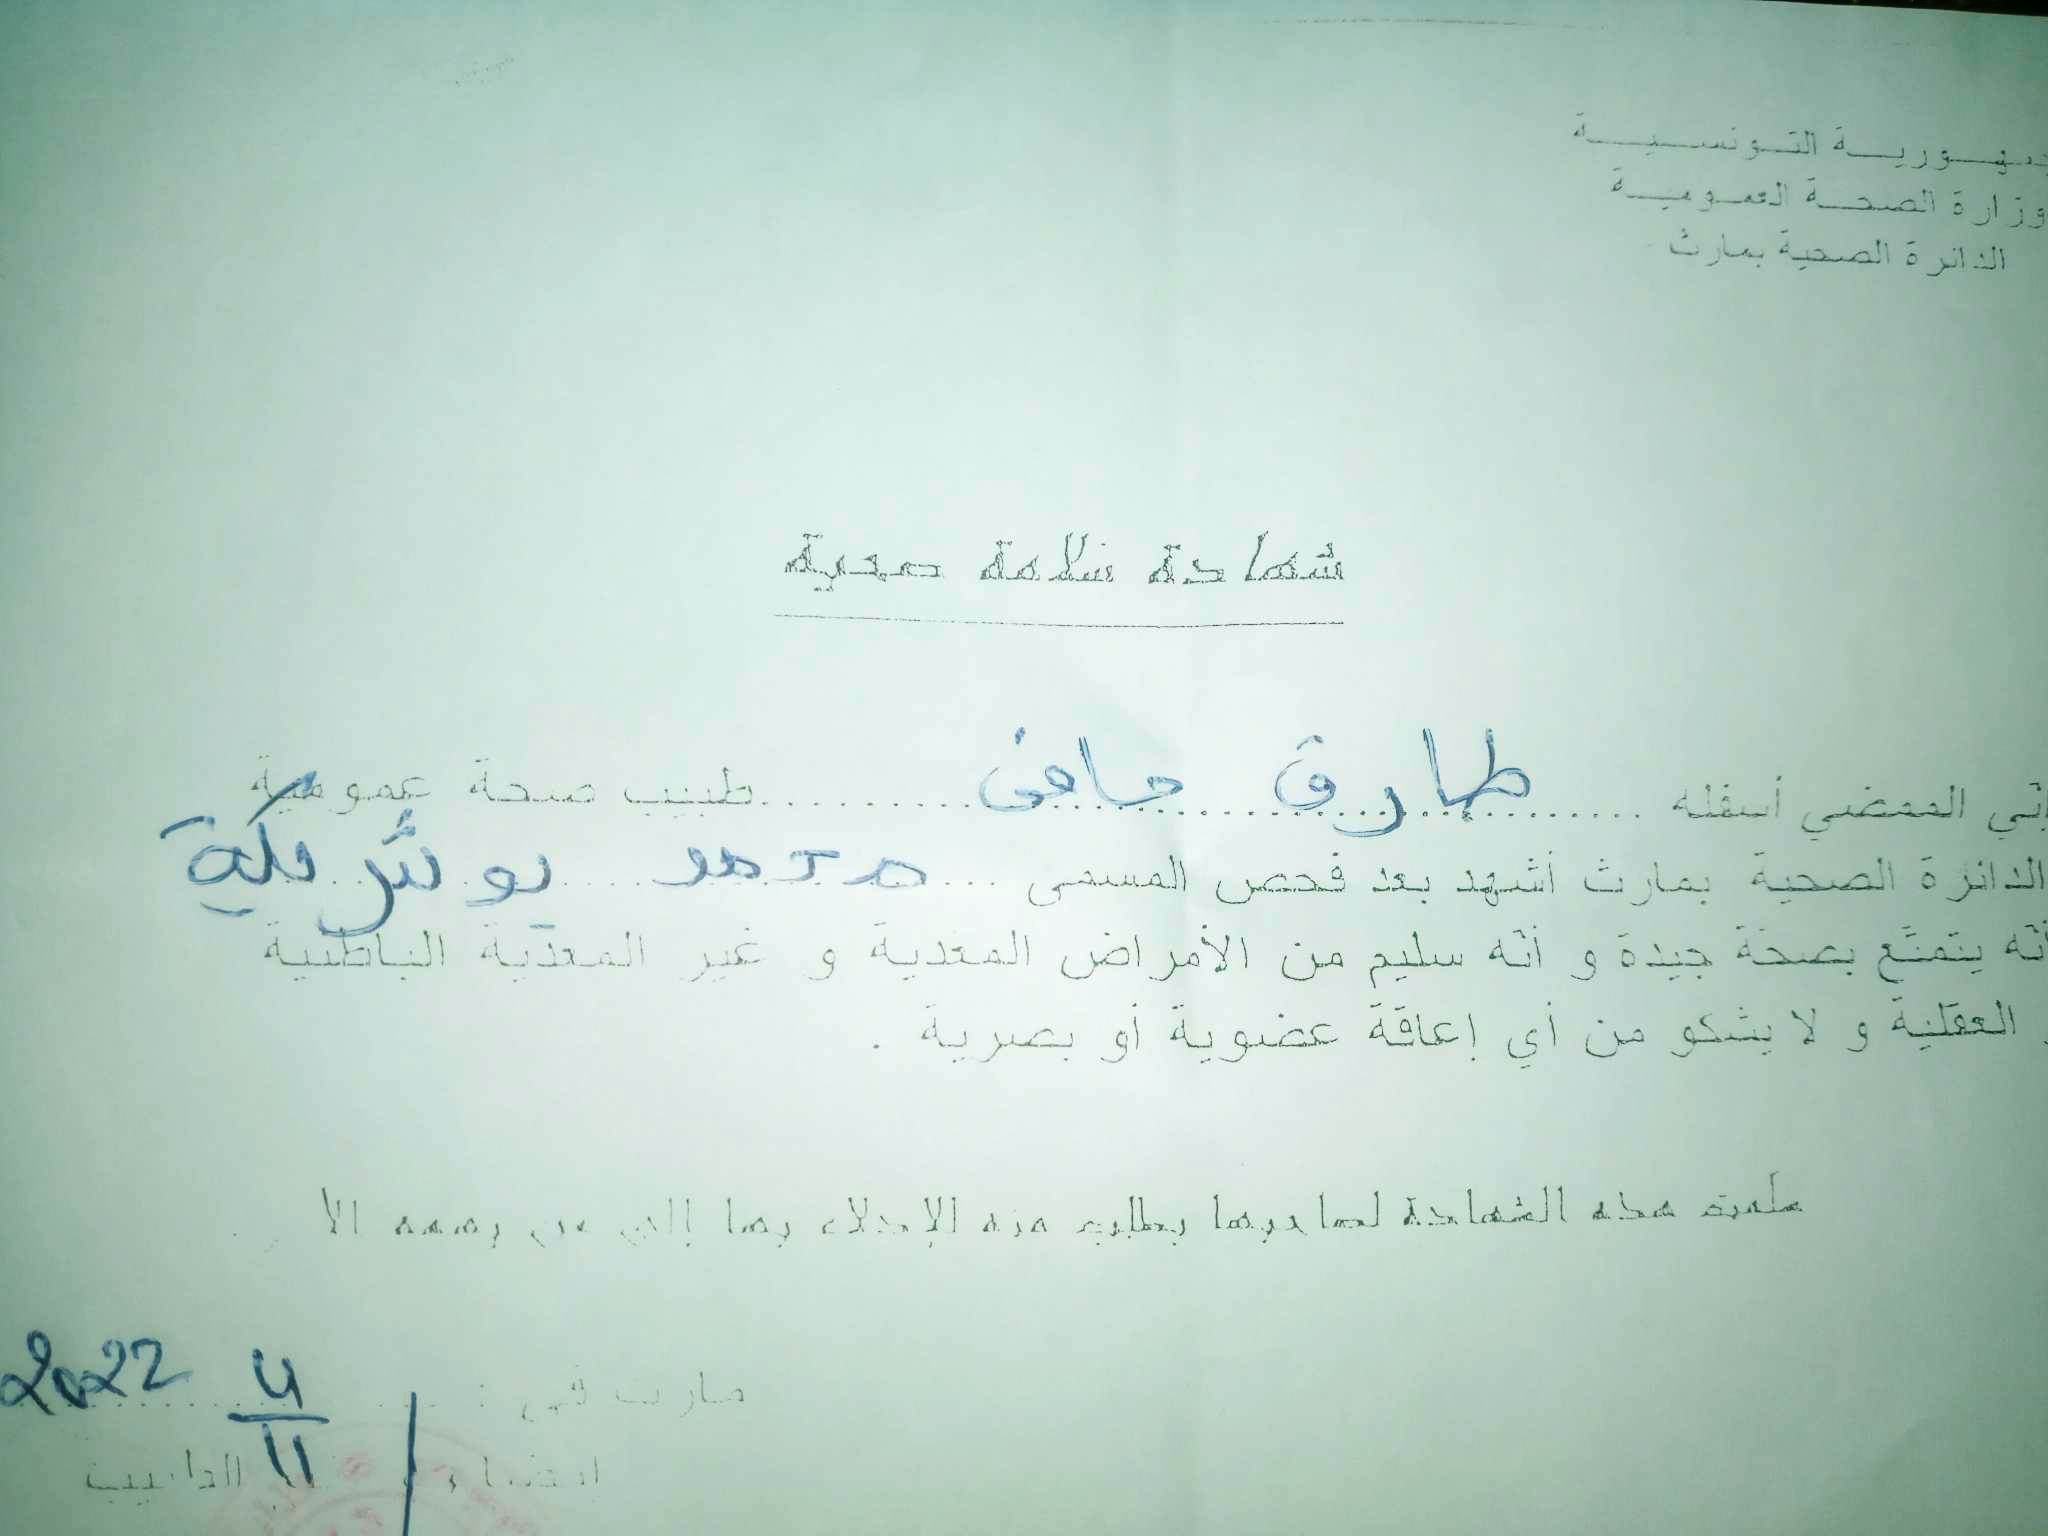 جمهورية التونسية
وزارة الصحة العمومية
الدائرة الصحية بمارث
شهادة سلامة صحية
إني الممضي أسفله ............ طارق حامي ............ طبيب صحة عمومية
الدائرة الصحية بمارث أشهد بعد فحص المسمى ... محمد بوشريكة
أنه يتمتع بصحة جيدة و أنه سليم من الأمراض المعدية و غير المعدية الباطنية
العقلية و لا يشكو من أي إعاقة عضوية أو بصرية .
سلمت هذه الشهادة لصاحبها بطلب منه للإدلاء بها إلى من يهمه الا
مارث في : 4/11 2022
إمضاء الطبيب